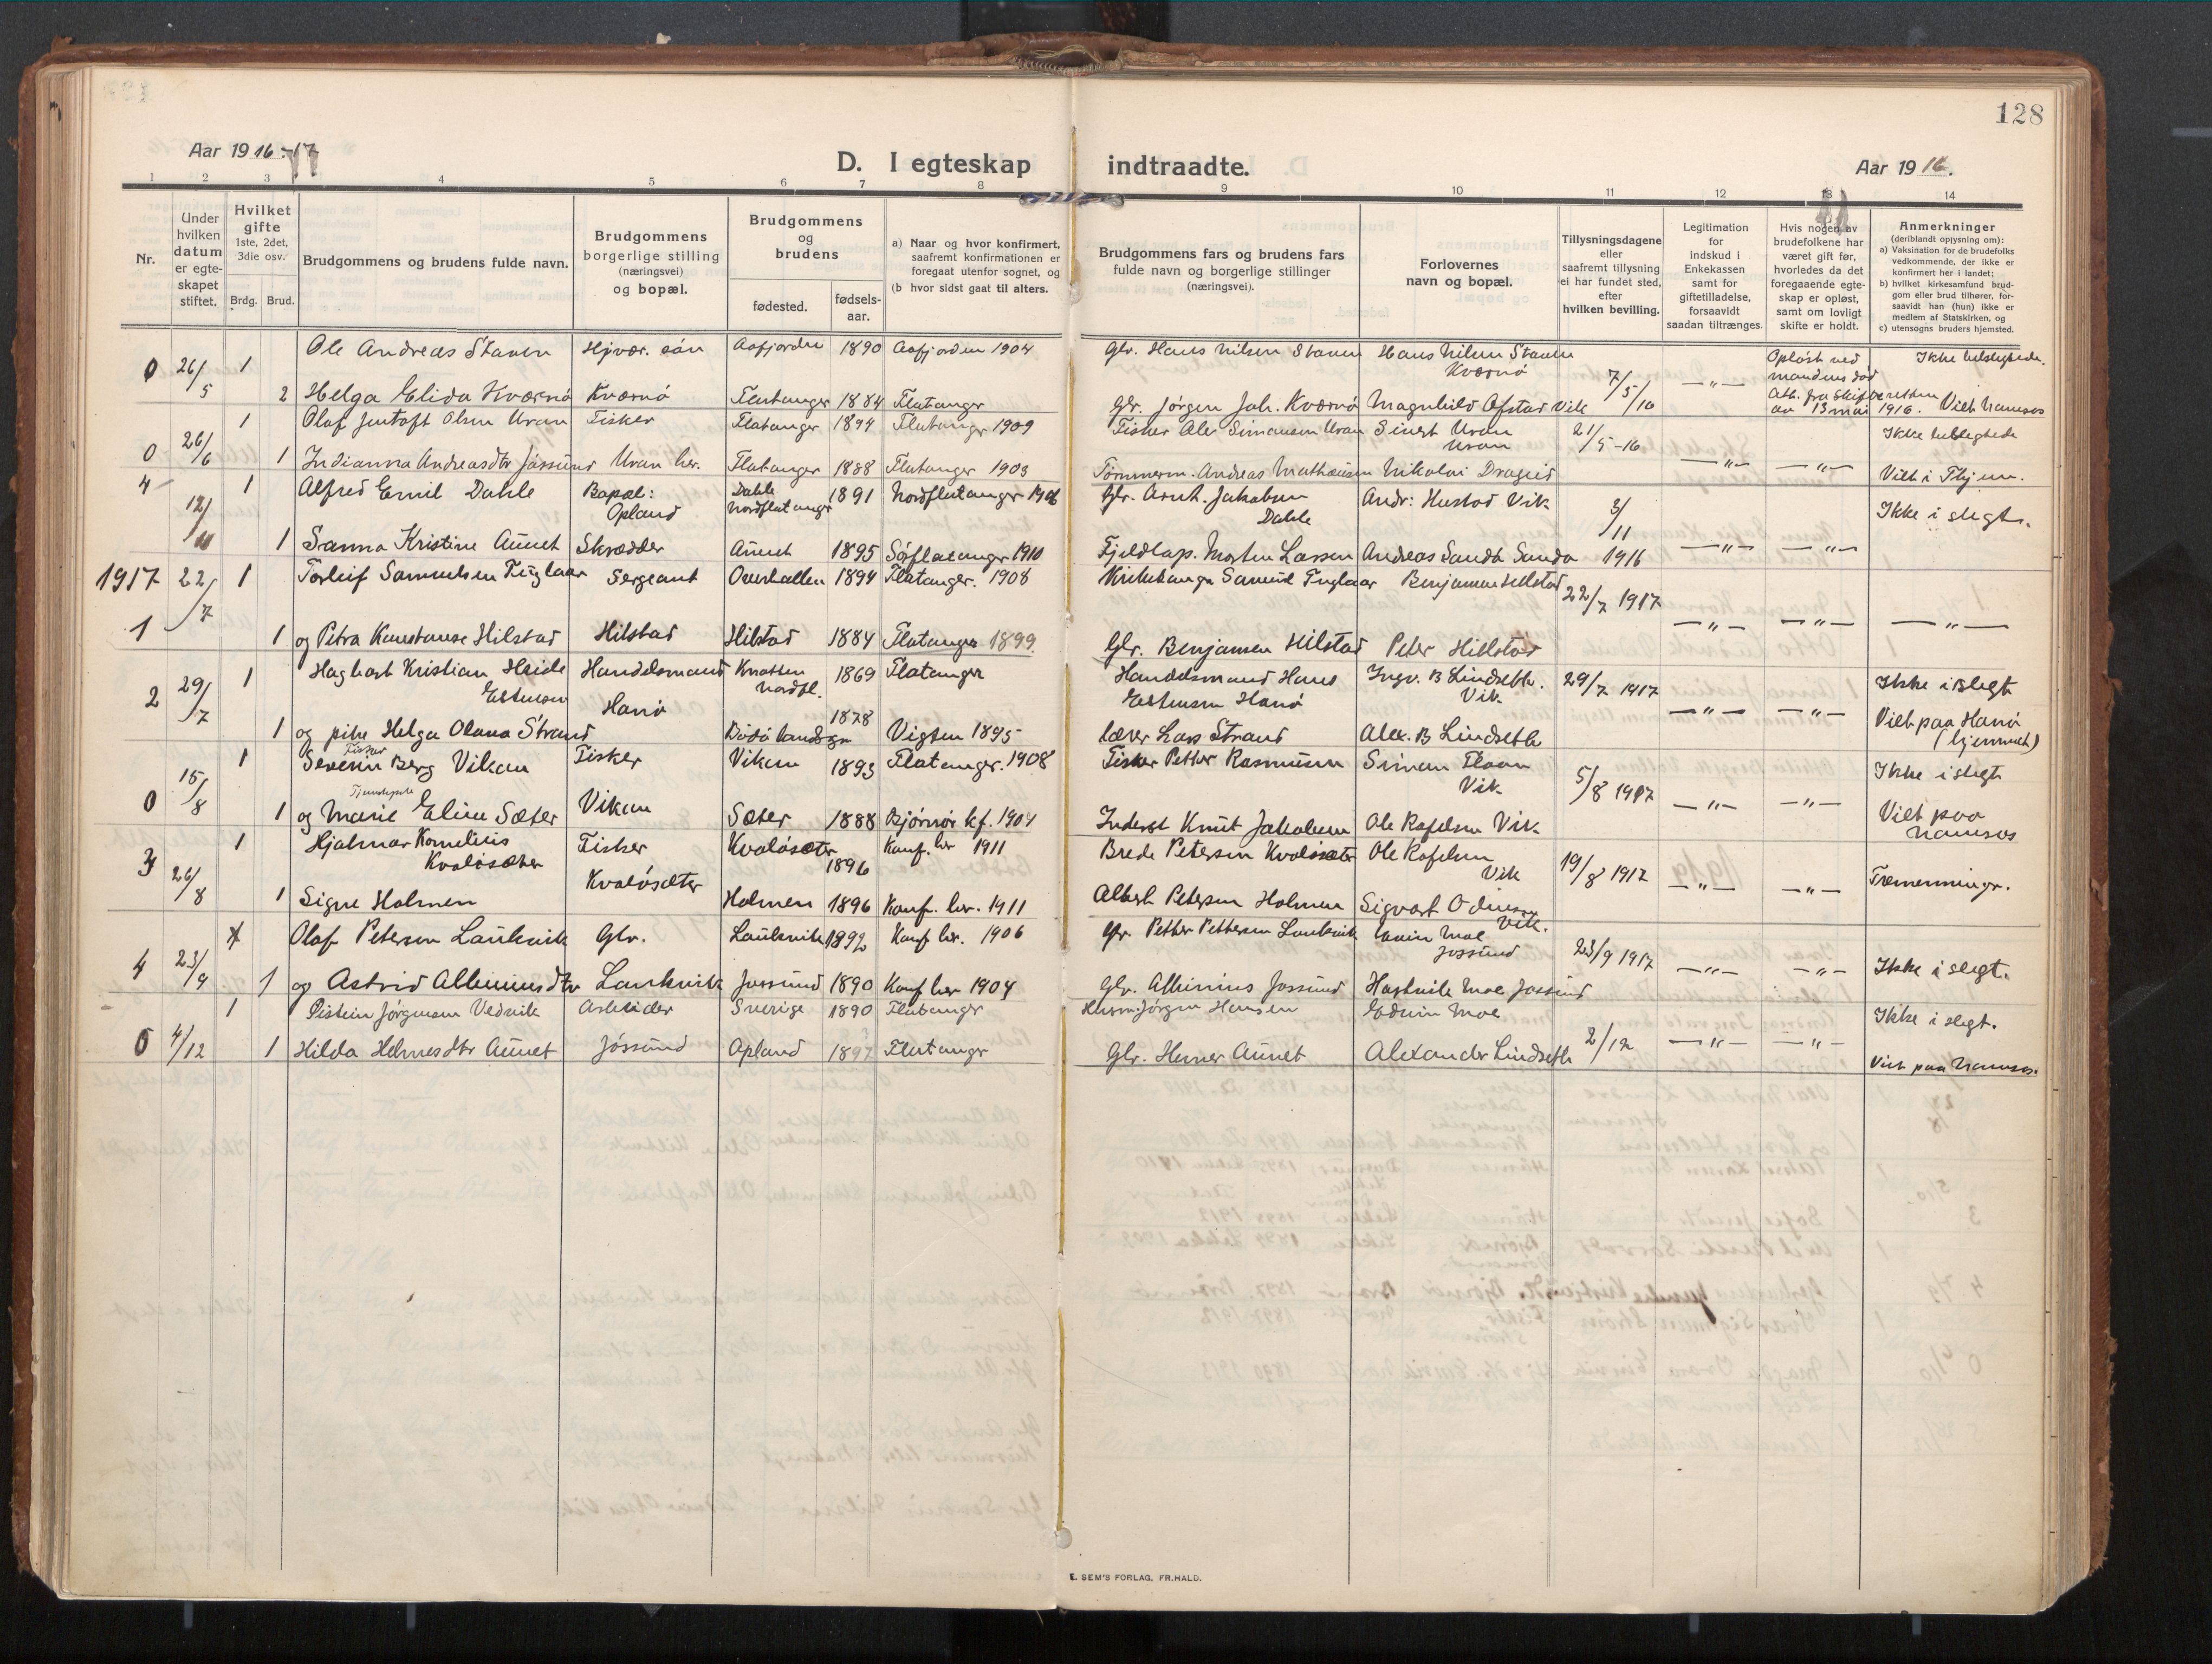 128
Aar 1916-17
D. I egteskap indtraadte.
Aar 1916.
1 2 3 4 5 6 7 8 9 10 11 12 13 14
Nr.
Under hvilken datum er egteskapet stiftet.
Hvilket gifte 1ste, 2det, 3die osv.
Brdg. Brud.
Brudgommens og brudens fulde navn.
Brudgommens borgerlige stilling (næringsvei) og bopæl.
Brudgommens og brudens
fødested.
fødsels-aar.
a) Naar og hvor konfirmert, saafremt konfirmationen er foregaat utenfor sognet, og
(b hvor sidst gaat til alters.
Brudgommens fars og brudens fars fulde navn og borgerlige stillinger (næringsvei).
Forlovernes navn og bopæl.
Tillysningsdagene eller saafremt tillysning ei har fundet sted, efter hvilken bevilling.
Legitimation for indskud i Enkekassen samt for giftetilladelse, forsaavidt saadan tiltrænges.
Hvis nogen av brudefolkene har været gift før, hvorledes da det foregaaende egteskap er opløst, samt om lovligt skifte er holdt.
Anmerkninger (deriblandt oplysning om):
a) Vaksination for de brudefolks vedkommende, der ikke er konfirmert her i landet;
b) hvilket kirkesamfund brudgom eller brud tilhører, forsaavidt han (hun) ikke er medlem af Statskirken, og
c) utensogns bruders hjemsted.
0 26/5 1 Ole Andreas Staven Aafjorden 1890 Aafjorden 1904 Gbr. Hans Nilsen Staven Hans Nilsen Staven Kværnø 7/5/16 —"— Opløst ved mandens død
2 Helga Elida Kværnø Kværnø Flatanger 1884 Flatanger Gbr. Jørgen Joh. Kværnø Magnhild Ofstad Vik Att. fra skifteretten av 13 mai 1916. Viet Namsos
0 26/6 1 Olaf Jentoft Olsen Uran Fisker Flatanger 1894 Flatanger 1909 Fisker Ole Simonsen Uran Sivert Uran Uran 21/5-16 —"— —"—
1 Indianna Andreasdtr Jøssund Uran her. Flatanger 1888 Flatanger 1903 Tømmerm. Andreas Mathæusen Nikolai Drageid
4 12/11 1 Alfred Emil Dahle Bopæl: Opland Dahle Nordflatanger 1891 Nordflatanger 1906 Gbr. Arnt. Jakobsen Dahle Andr: Hustad Vik 3/11 1916 —"— —"— Ikke i slegt.
1 Sanna Kristine Aunet Skrædder Aunet 1895 Sørflatanger 1910 Fjeldlap. Morten Lassen Andreas Sandø Sandø
1917 1 22/7 1 Torleif Samuelsen Fuglaar Sergeant Overhallen 1894 Flatanger. 1908 Kirkesanger Samuel Fuglaar Benjamin Hilstad 22/7 1917 —"— —"— —"—
1 og Petra Konstanse Hilstad Hilstad Hilstad 1884 Flatanger 1899. Gbr. Benjamin Hilstad Peter Hilstad
2 29/7 1 Hagbart Kristian Heide Estensen Handelsmand Hanø Knotten Nordfl. 1869 Flatanger Handelsmand Hans Estensen Hanø Ingv. B Lindseth. Vik 29/7 1917 —"— —"— Ikke i slegt
1 og pike Helga Olava Strand 1878 Vigten 1895 Lærer Lars Strand Alex. B Lindseth Viet paa Hanø (hjemmet)
0 15/8 1 Fisker Severin Berg Vikan Fisker Vikan 1893 Flatanger. 1908 Fisker Petter Rasmussen Simen Floan Vik 5/8 1917 —"— —"— Ikke i slegt
1 Tjenestepike og Marie Eline Sæter Vikan Sæter 1888 Bjørnør kf. 1904 Inderst Knut Jakobsen Ole Rafelsen Vik Viet paa Namsos
3 26/8 1 Hjalmar Kornelius Kvaløsæter Fisker Kvaløsæter 1896 Konf. her 1911 Brede Petersen Kvaløsæter Ole Rafelsen Vik 19/8 1917 —"— —"— Tremenninger.
1 Signe Holmen Kvaløsæter Holmen 1896 Konf. her. 1911 Albert Petersen Holmen Sigvart Odinsen Vik.
4 23/9 1 Olaf Petersen Laukvik Gbr. Laukvik 1892 Konf her. 1906 Gbr. Petter Pettersen Laukvik Edvin Moe Jøssund 23/9 1917 —"— —"— Ikke i slegt.
1 og Astrid Albiniusdtr Laukvik Jøssund 1890 Konf her 1904 Gbr. Albinius Jøssund Moe Jøssund
5 4/12 1 Øistein Jørgensen Vedvik Arbeider Sverige 1890 Flatanger Husm. Jørgen Hansen Edvin Moe 2/12 —"— —"— Ikke i slegt.
1 Hilda Helmersdtr Aunet Jøssund Opland 1897 Flatanger Gbr. Helmer Aunet Alexander Lindseth Viet paa Namsos.
E. SEM'S FORLAG, FR.HALD.